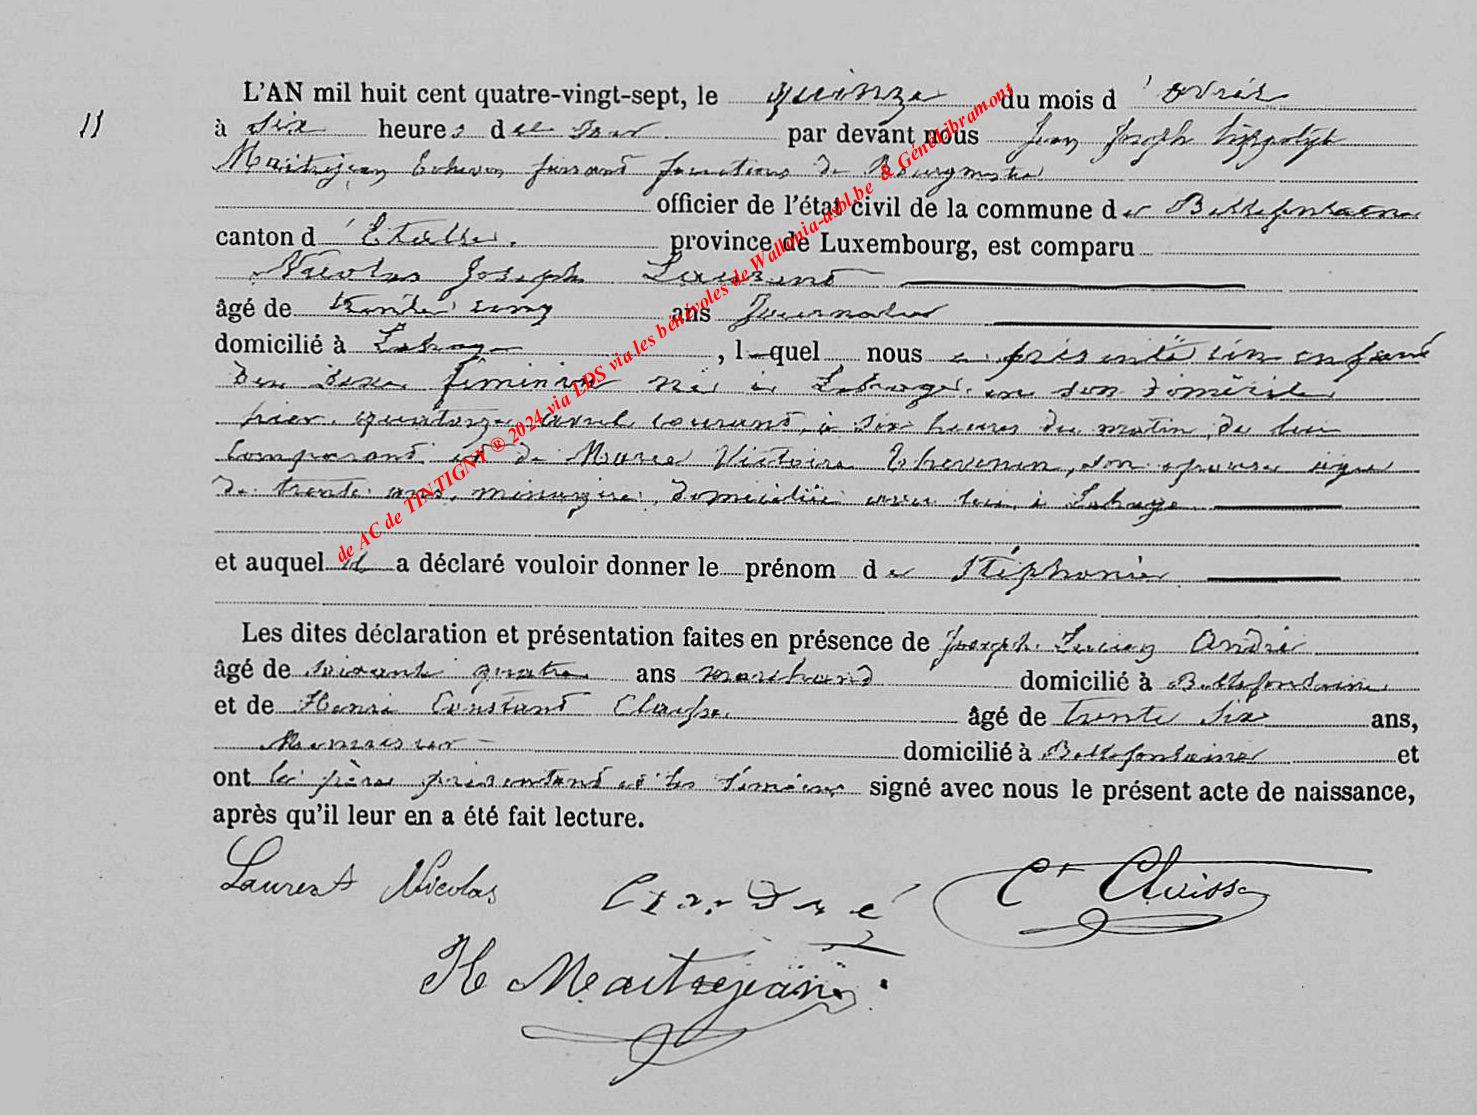 11
L'AN mil huit cent quatre-vingt-sept, le quinze du mois d'avril
à six heures du soir par devant nous Jean Joseph hippolyte
Maitrejean Echevin faisant fonctions de Bourgmestre
officier de l'état civil de la commune de Bellefontaine
canton d'Etalle. province de Luxembourg, est comparu
Nicolas Joseph Laurent
âgé de trente cinq ans Journalier
domicilié à Lahage, lequel nous a présenté un enfant
du sexe féminin né à Lahage en son domicile
hier quatorze avril courant, à six heures du matin, de lui
comparant et de Marie Victoire Thevenin, son épouse agée
de trente ans, ménagère, domiciliée avec lui à Lahage
et auquel il a déclaré vouloir donner le prénom de Stéphanie
Les dites déclaration et présentation faites en présence de Joseph Lucien André
âgé de soixante quatre ans marchand domicilié à Bellefontaine
et de Henri Constant Claisse âgé de trente six ans,
Menuisier domicilié à Bellefontaine et
ont le père présentant et les témoins signé avec nous le présent acte de naissance,
après qu'il leur en a été fait lecture.
Laurent Nicolas
Ct Claisse
H Maitrejean
de AC de TINTIGNY ® 2024 via LDS via les bénévoles de Wallonia-asbl.be & Génélibramont